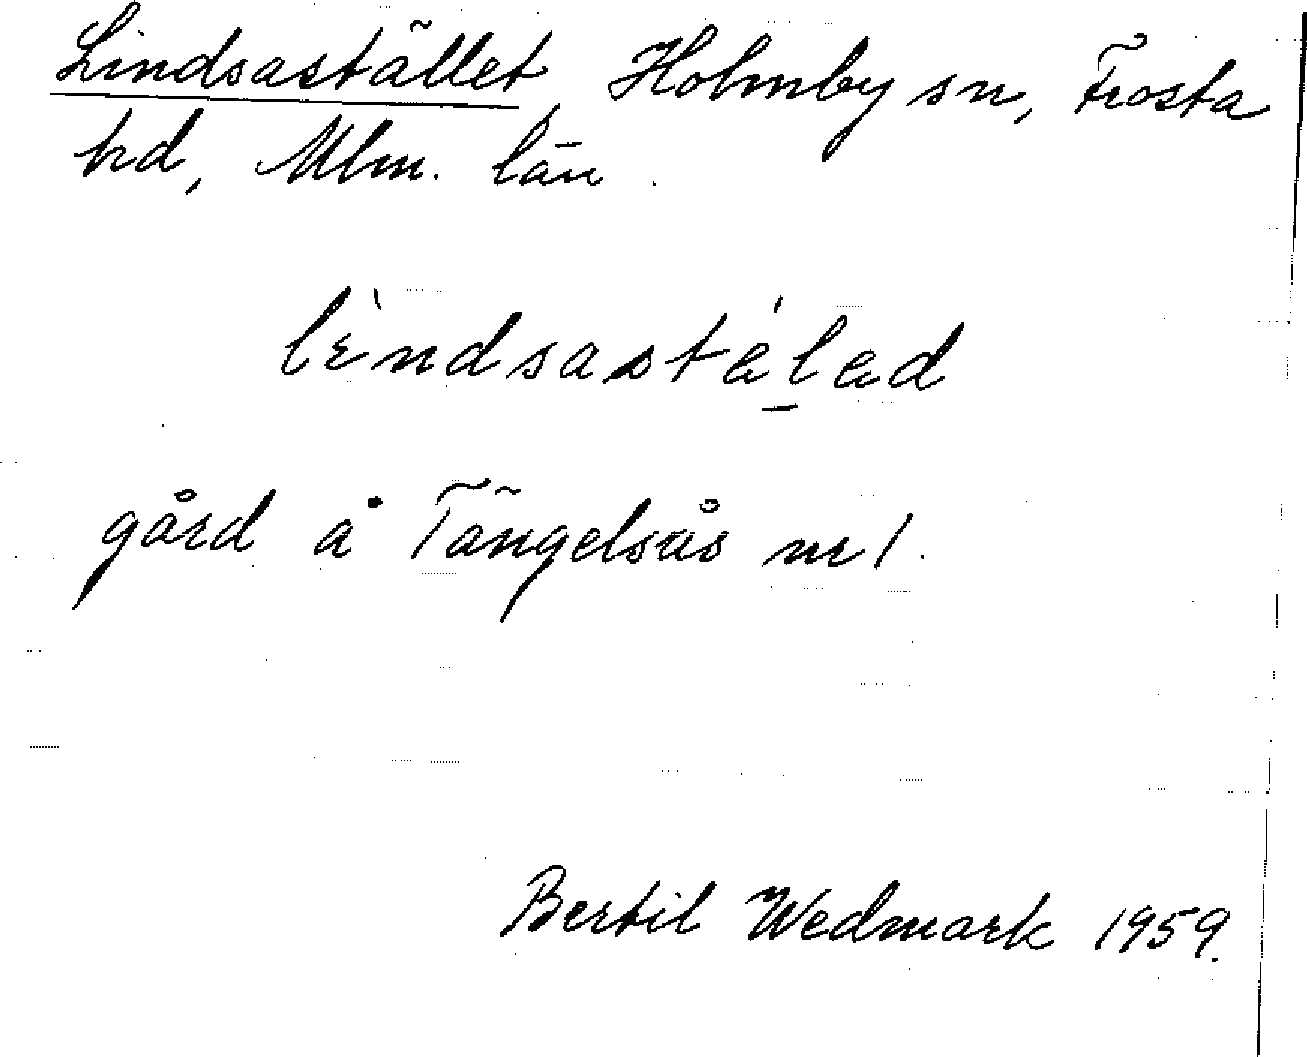 Lindsastället, Holmby sn, Frosta
hd, Mlm. län.
lèndsastéläd
gård å Tängelsås nr 1.
Bertil Wedmark 1959.